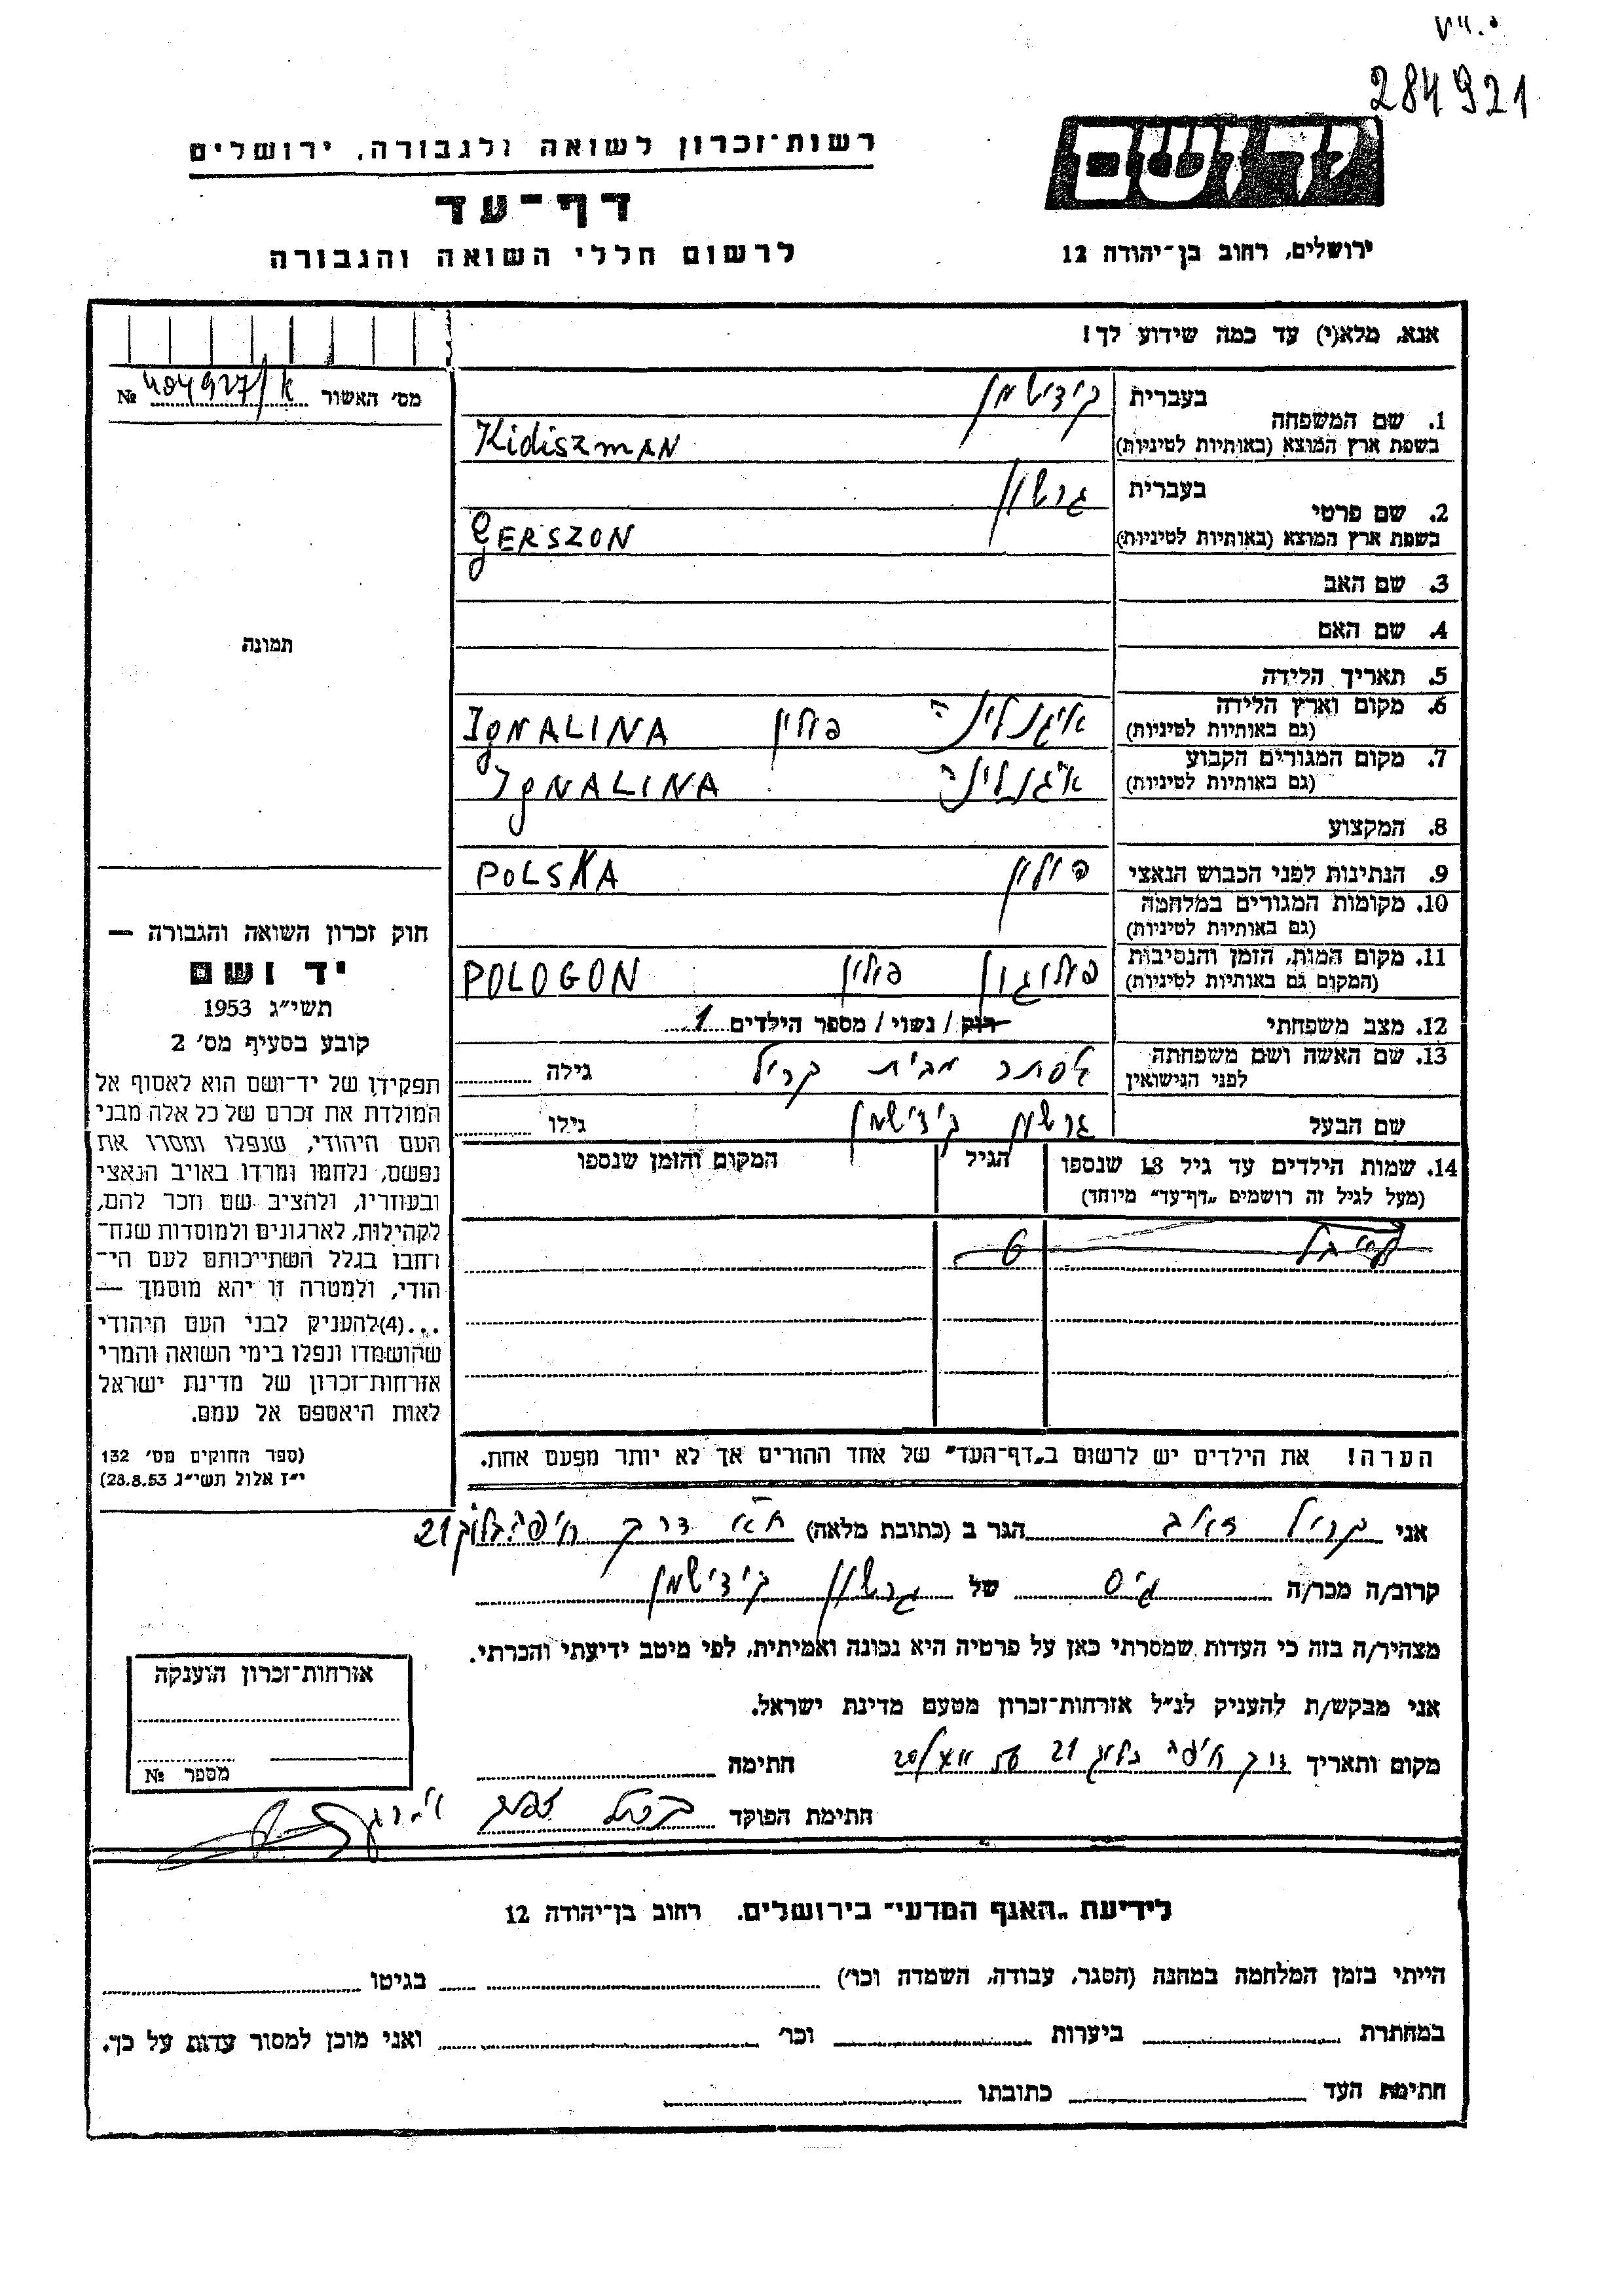 284921
יד ושם
רשות־זכרון לשואה ולגבורה, ירושלים
דף־עד
לרשום חללי השואה והגבורה
ירושלים, רחוב בן־יהודה 12
אנא, מלא(י) עד כמה שידוע לך!
מס' האשור №
1. שם המשפחה בעברית קידישמן
בשפת ארץ המוצא (באותיות לטיניות) Kidiszman
2. שם פרטי בעברית גרשון
בשפת ארץ המוצא (באותיות לטיניות) GERSZON
3. שם האב
4. שם האם
5. תאריך הלידה
6. מקום וארץ הלידה (גם באותיות לטיניות) איגנלינה פולין IgNALINA
7. מקום המגורים הקבוע (גם באותיות לטיניות) איגנלינה IgNALINA
8. המקצוע
9. הנתינות לפני הכבוש הנאצי פולין POLSKA
10. מקומות המגורים במלחמה (גם באותיות לטיניות)
11. מקום המות, הזמן והנסיבות (המקום גם באותיות לטיניות) פולוגון פולין POLOGON
12. מצב משפחתי רוק / נשוי / מספר הילדים 1
13. שם האשה ושם משפחתה לפני הנישואין אסתר מבית קריל גילה
שם הבעל גרשון קידישמן גילו
14. שמות הילדים עד גיל 18 שנספו (מעל לגיל זה רושמים „דף־עד” מיוחד) הגיל המקום והזמן שנספו
6
הערה! את הילדים יש לרשום ב„דף־העד” של אחד ההורים אך לא יותר מפעם אחת.
תמונה
חוק זכרון השואה והגבורה —
יד ושם
תשי״ג 1953
קובע בסעיף מס' 2
תפקידו של יד־ושם הוא לאסוף אל
המולדת את זכרם של כל אלה מבני
העם היהודי, שנפלו ומסרו את
נפשם, נלחמו ומרדו באויב הנאצי
ובעוזריו, ולהציב שם וזכר להם,
לקהילות, לארגונים ולמוסדות שנח־
רחבו בגלל השתייכותם לעם הי־
הודי, ולמטרה זו יהא מוסמך —
...(4)להעניק לבני העם היהודי
שהושמדו ונפלו בימי השואה והמרי
אזרחות־זכרון של מדינת ישראל
לאות היאספם אל עמם.
(ספר החוקים מס' 132
י״ז אלול תשי״ג 28.8.53)
אני קריל זאב הגר ב (כתובת מלאה) ת״א דרך חיפה בלוק 21
קרוב/ה מכר/ה גיס של גרשון קידישמן
מצהיר/ה בזה כי העדות שמסרתי כאן על פרטיה היא נכונה ואמיתית, לפי מיטב ידיעתי והכרתי.
אני מבקש/ת להעניק לנ״ל אזרחות־זכרון מטעם מדינת ישראל.
מקום ותאריך דרך חיפה בלוק 21 חתימה
חתימת הפוקד
אזרחות־זכרון הוענקה
מספר №
לידיעת „האגף המדעי” בירושלים. רחוב בן־יהודה 12
הייתי בזמן המלחמה במחנה (הסגר, עבודה, השמדה וכו') בגיטו
במחתרת ביערות וכו' ואני מוכן למסור עדות על כך.
חתימת העד כתובתו